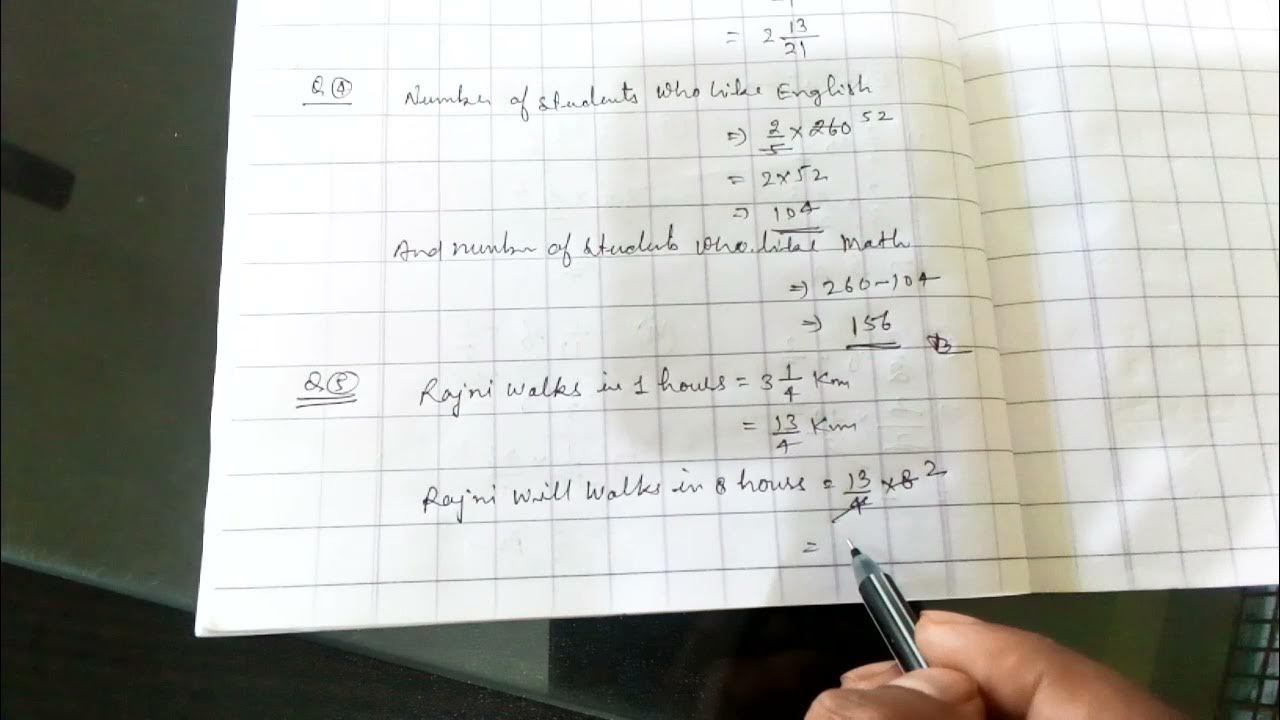 = 2 13/21
Q④ Number of students who like English
⇒ 2/5 × 260 52
= 2×52
⇒ 104
And number of students who like Math
⇒ 260-104
⇒ 156
Q⑤ Rajni walks in 1 hours = 3 1/4 Km
= 13/4 Km
Rajni will walks in 8 hours = 13/4 × 8 2
=